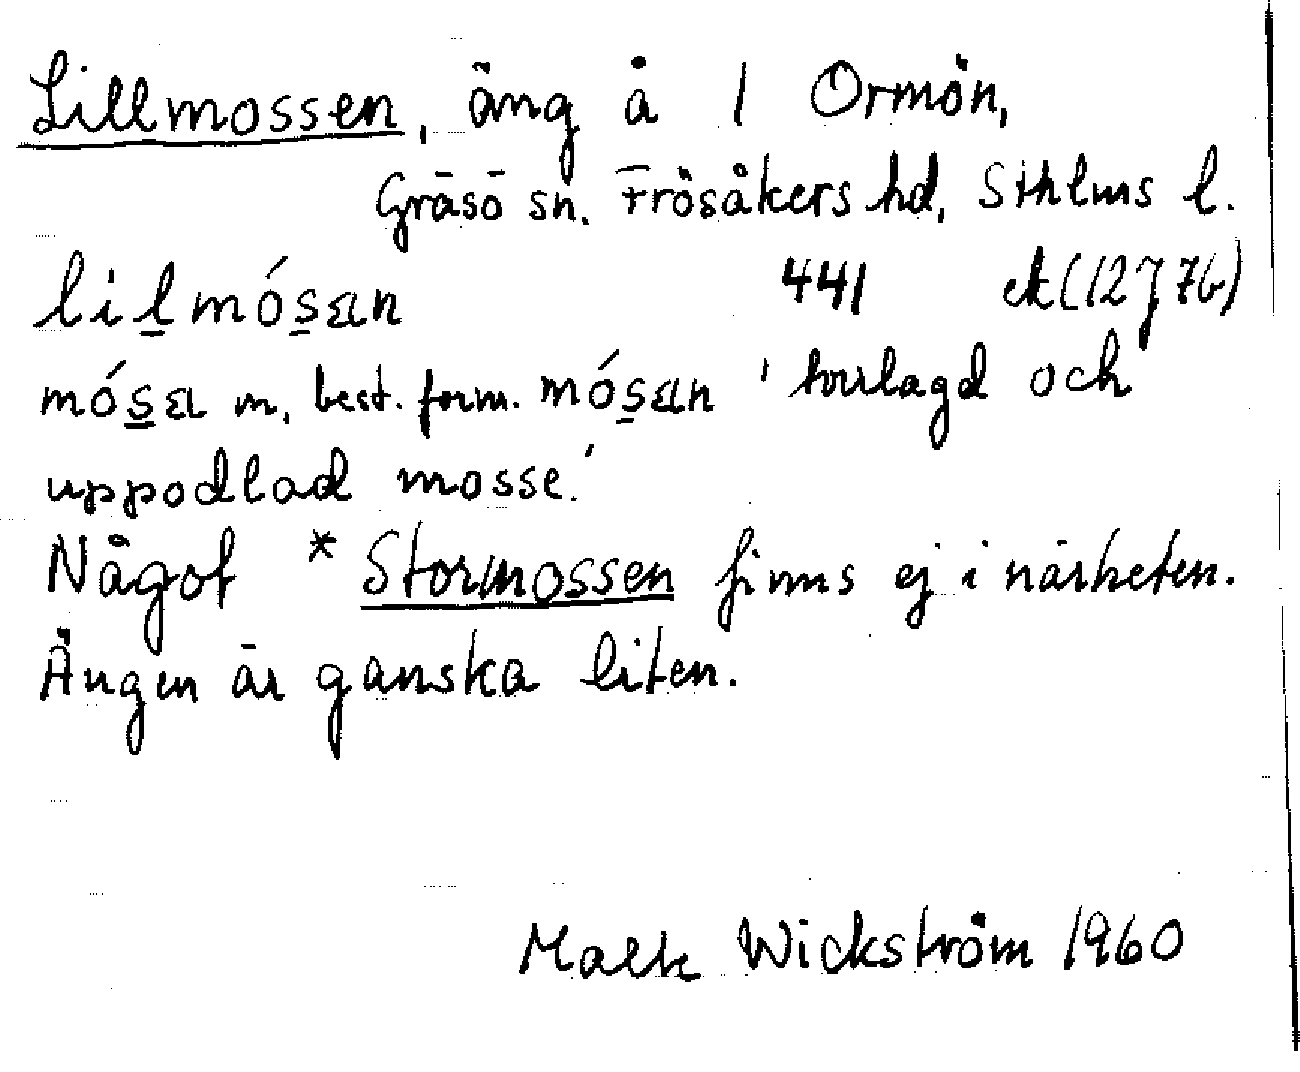 Lillmossen, äng å 1 Ormön,
Gräsö sn. Frösåkers hd, Sthlms l.
lilmósan 441 ek (12J7b)
mósa m, best. form. mósan 'torrlagd och
uppodlad mosse.'
Något *Stormossen finns ej i närheten.
Ängen är ganska liten.
Wickström 1960